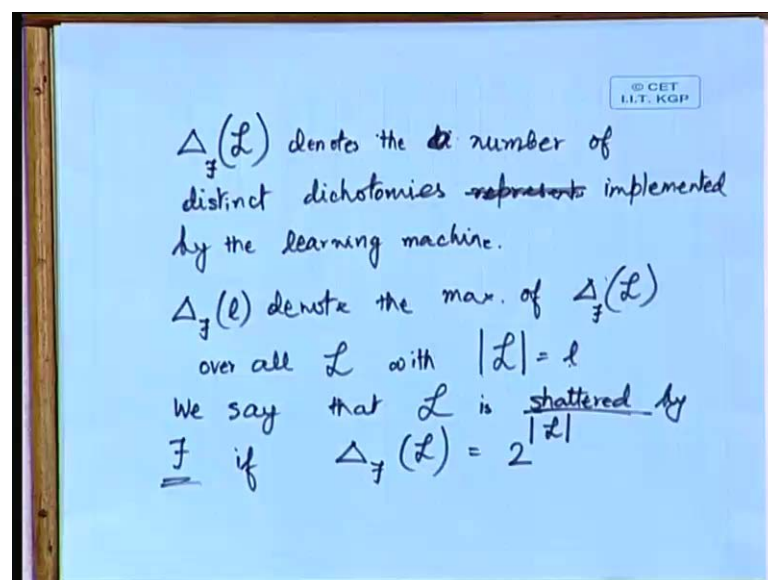 © CET
I.I.T. KGP
Δ_ℱ(ℒ) denotes the number of
distinct dichotomies represents implemented
by the learning machine.
Δ_ℱ(l) denote the max. of Δ_ℱ(ℒ)
over all ℒ with |ℒ| = l
We say that ℒ is shattered by
ℱ if Δ_ℱ(ℒ) = 2^|ℒ|